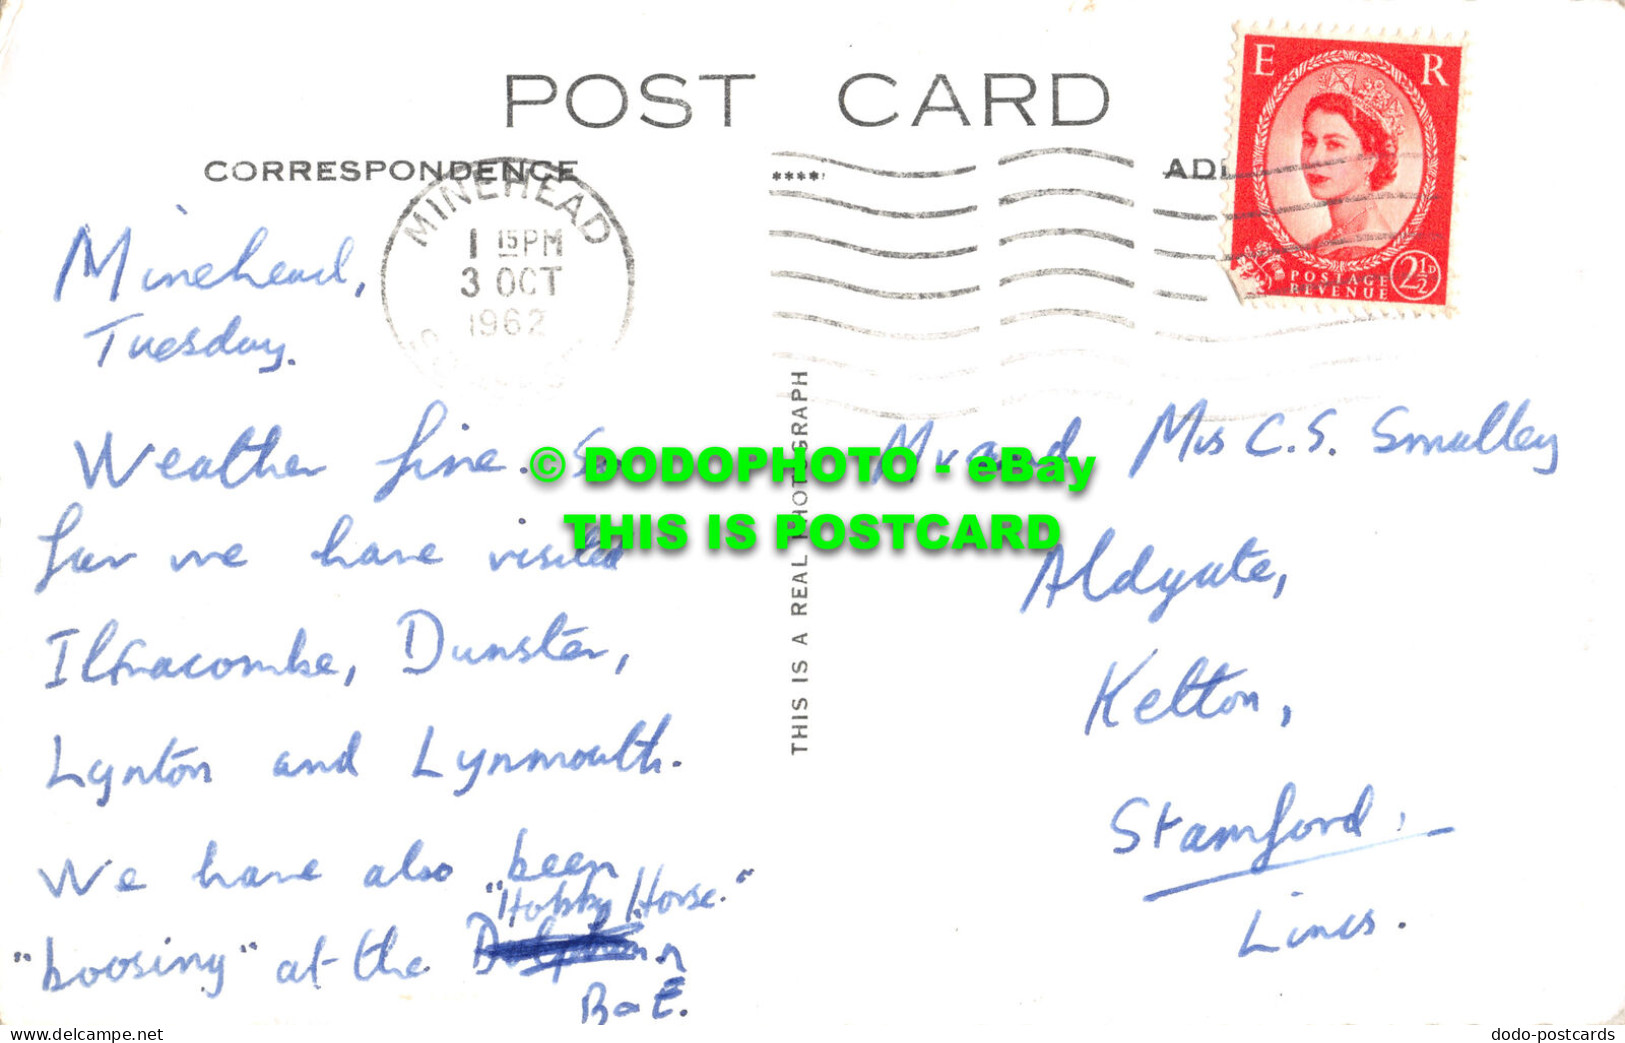 POST CARD
CORRESPONDENCE
ADD
E R
POSTAGE
REVENUE
2½D
MINEHEAD
1 15 PM
3 OCT
1962
Minehead,
Tuesday.
Weather fine. So
far we have visited
Ilfracombe, Dunster,
Lynton and Lynmouth.
We have also been
"Hobby Horse."
"boosing" at the
B & E.
THIS IS A REAL PHOTOGRAPH
Mr and Mrs C.S. Smalley
Aldgate,
Ketton,
Stamford.
Lincs.
© DODOPHOTO - eBay
THIS IS POSTCARD
www.delcampe.net
dodo-postcards